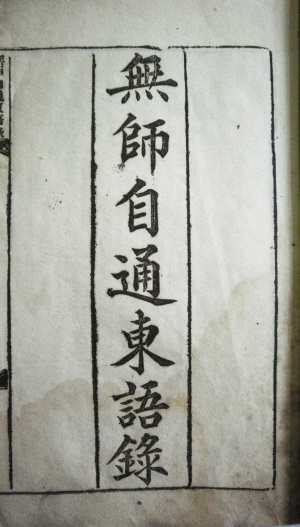 無師自通東語錄